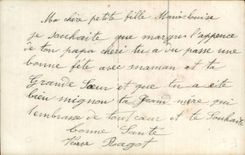 Ma chère petite fille Marie Louise
je souhaite que margré l'appence
de ton papa cheri tu a du passe une
bonne fête avec maman et ta
Grande Sœur et que tu a été
bien mignon ta Grand mère qui
t'embrasse de tout cœur et te Souhaite
bonne Santé
Ragot